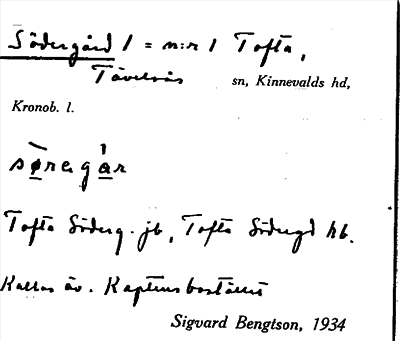 Södergård 1 = n:r 1 Tofta,
Tävelsås sn, Kinnevalds hd,
Kronob. l.
sø̀regár
Tofta Söderg. jb, Tofta Södergd hb.
Kallas äv. Kaptensbostället
Sigvard Bengtson, 1934